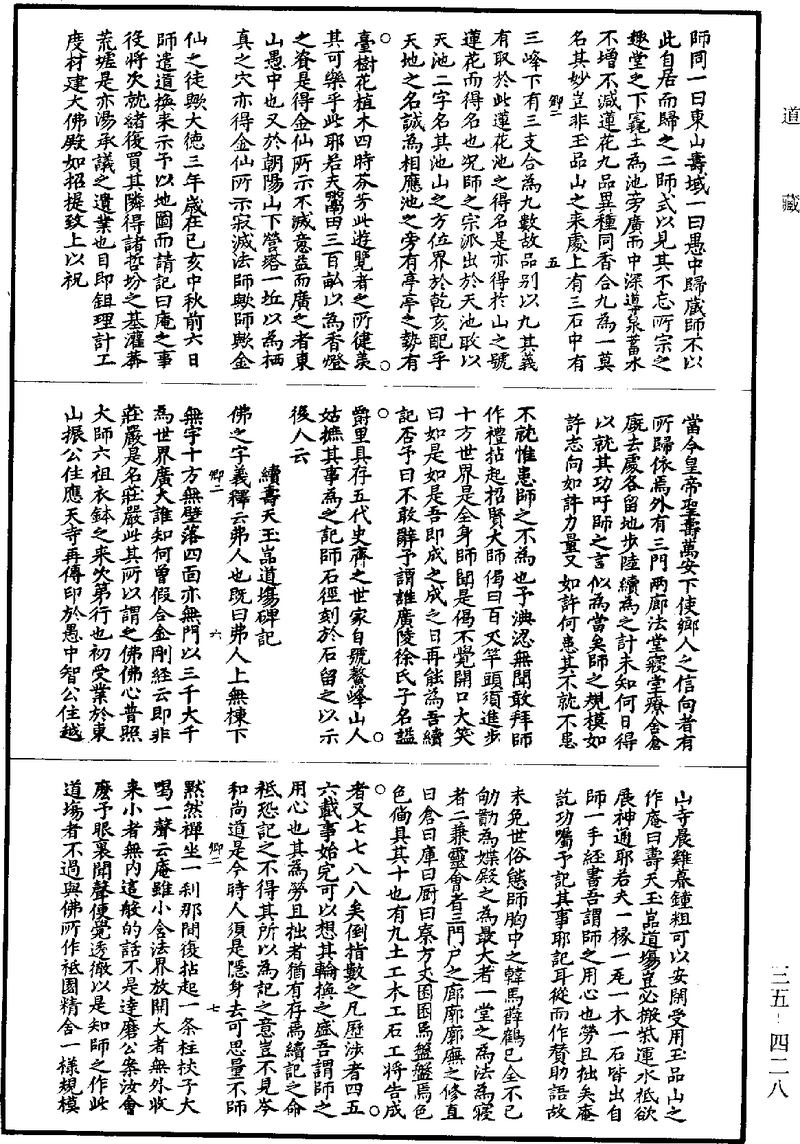 道藏
師同一曰東山壽域一曰愚中歸藏師不以
此自居而歸之二師式以見其不忘所宗之
趣堂之下竁土為池旁廣而中深導泉蓄水
不增不減蓮花九品異種同香合九為一莫
名其妙豈非玉品山之来處上有三石中有
卿二 五
三峰下有三支合為九數故品别以九其義
有取於此蓮花池之得名是亦得於山之號
蓮花而得名也况師之宗派出於天池取以
天池二字名其池山之方位界於乾亥配乎
天地之名誠為相應池之旁有亭亭之勢有
臺樹花植木四時芬芳此遊覽者之所健羡
其可樂乎此耶若夫鬻田三百畝以為香燈
之資是得金仙所示不滅意益而廣之者東
山愚中也又於朝陽山下營塔一坵以為栖
真之穴亦得金仙所示寂滅法師歟師歟金
仙之徒歟大德三年歲在己亥中秋前六日
師遣道換来示予以地圖而請記曰庵之事
役將次就緒後買其隣得諸哲坋之基灌莽
荒墟是亦湯承議之遺業也目即鉏理計工
度材建大佛殿如招提致上以祝
當今皇帝聖壽萬安下使鄉人之信向者有
所歸依焉外有三門兩廊法堂寢堂寮舍倉
廐去處各留地步陸續為之計未知何日得
以就其功吁師之言似為當矣師之規模如
許志向如許力量又如許何患其不就不患
不就惟患師之不為也予演認無聞敢拜師
作禮拈起招賢大師偈曰百尺竿頭須進步
十方世界是全身師聞是偈不覺開口大笑
曰如是如是吾即成之成之日再能為吾續
記否予曰不敢辭予謂誰廣陵徐氏子名謐
爵里具存五代史齊之世家自號鰲峰山人
姑摭其事為之記師石徑刻於石留之以示
後人云
續壽天玉品道場碑記
佛之字義釋云弗人也既曰弗人上無棟下
卿二 六
無宇十方無壁落四面亦無門以三千大千
為世界廣大誰知何曾假合金剛經云即非
莊嚴是名莊嚴此其所以謂之佛佛心普照
大師六祖衣鉢之来次第行也初受業於東
山振公住應天寺再傳印於愚中智公住越
山寺晨雞暮鍾粗可以安閑受用玉品山之
作庵曰壽天玉品道場豈必搬柴運水祇欲
展神通耶若夫一椽一瓦一木一石皆出自
師一手經書吾謂師之用心也勞且拙矣庵
訖功囑予記其事耶記耳從而作贊助語故
未免世俗態師胸中之韓馬薛鶴已全不已
劬勤為媒殿之為最大者一堂之為法為寢
者二兼靈會者三門戶之廊廓廓廡之修直
曰倉曰庫曰厨曰寮方丈囷囷焉盤盤焉色
色俻具其十也有九土工木工石工將告成
者又七七八八矣倒指數之凡歷涉者四五
六載事始完可以想其輪換之盛吾謂師之
用心也其為勞且拙者猶有存焉續記之命
祗恐記之不得其所以為記之意豈不見岑
和尚道是今時人須是隱身去可思量不師
卿二 七
黙然禪坐一刹那間後拈起一条柱杖子大
喝一聲云庵雖小含法界放開大者無外收
来小者無内這般的話不是達磨公案汝會
麽予眼裏聞聲便覺透徹以是知師之作此
道場者不過與佛所作祇園精舍一様規模
三五－四二八